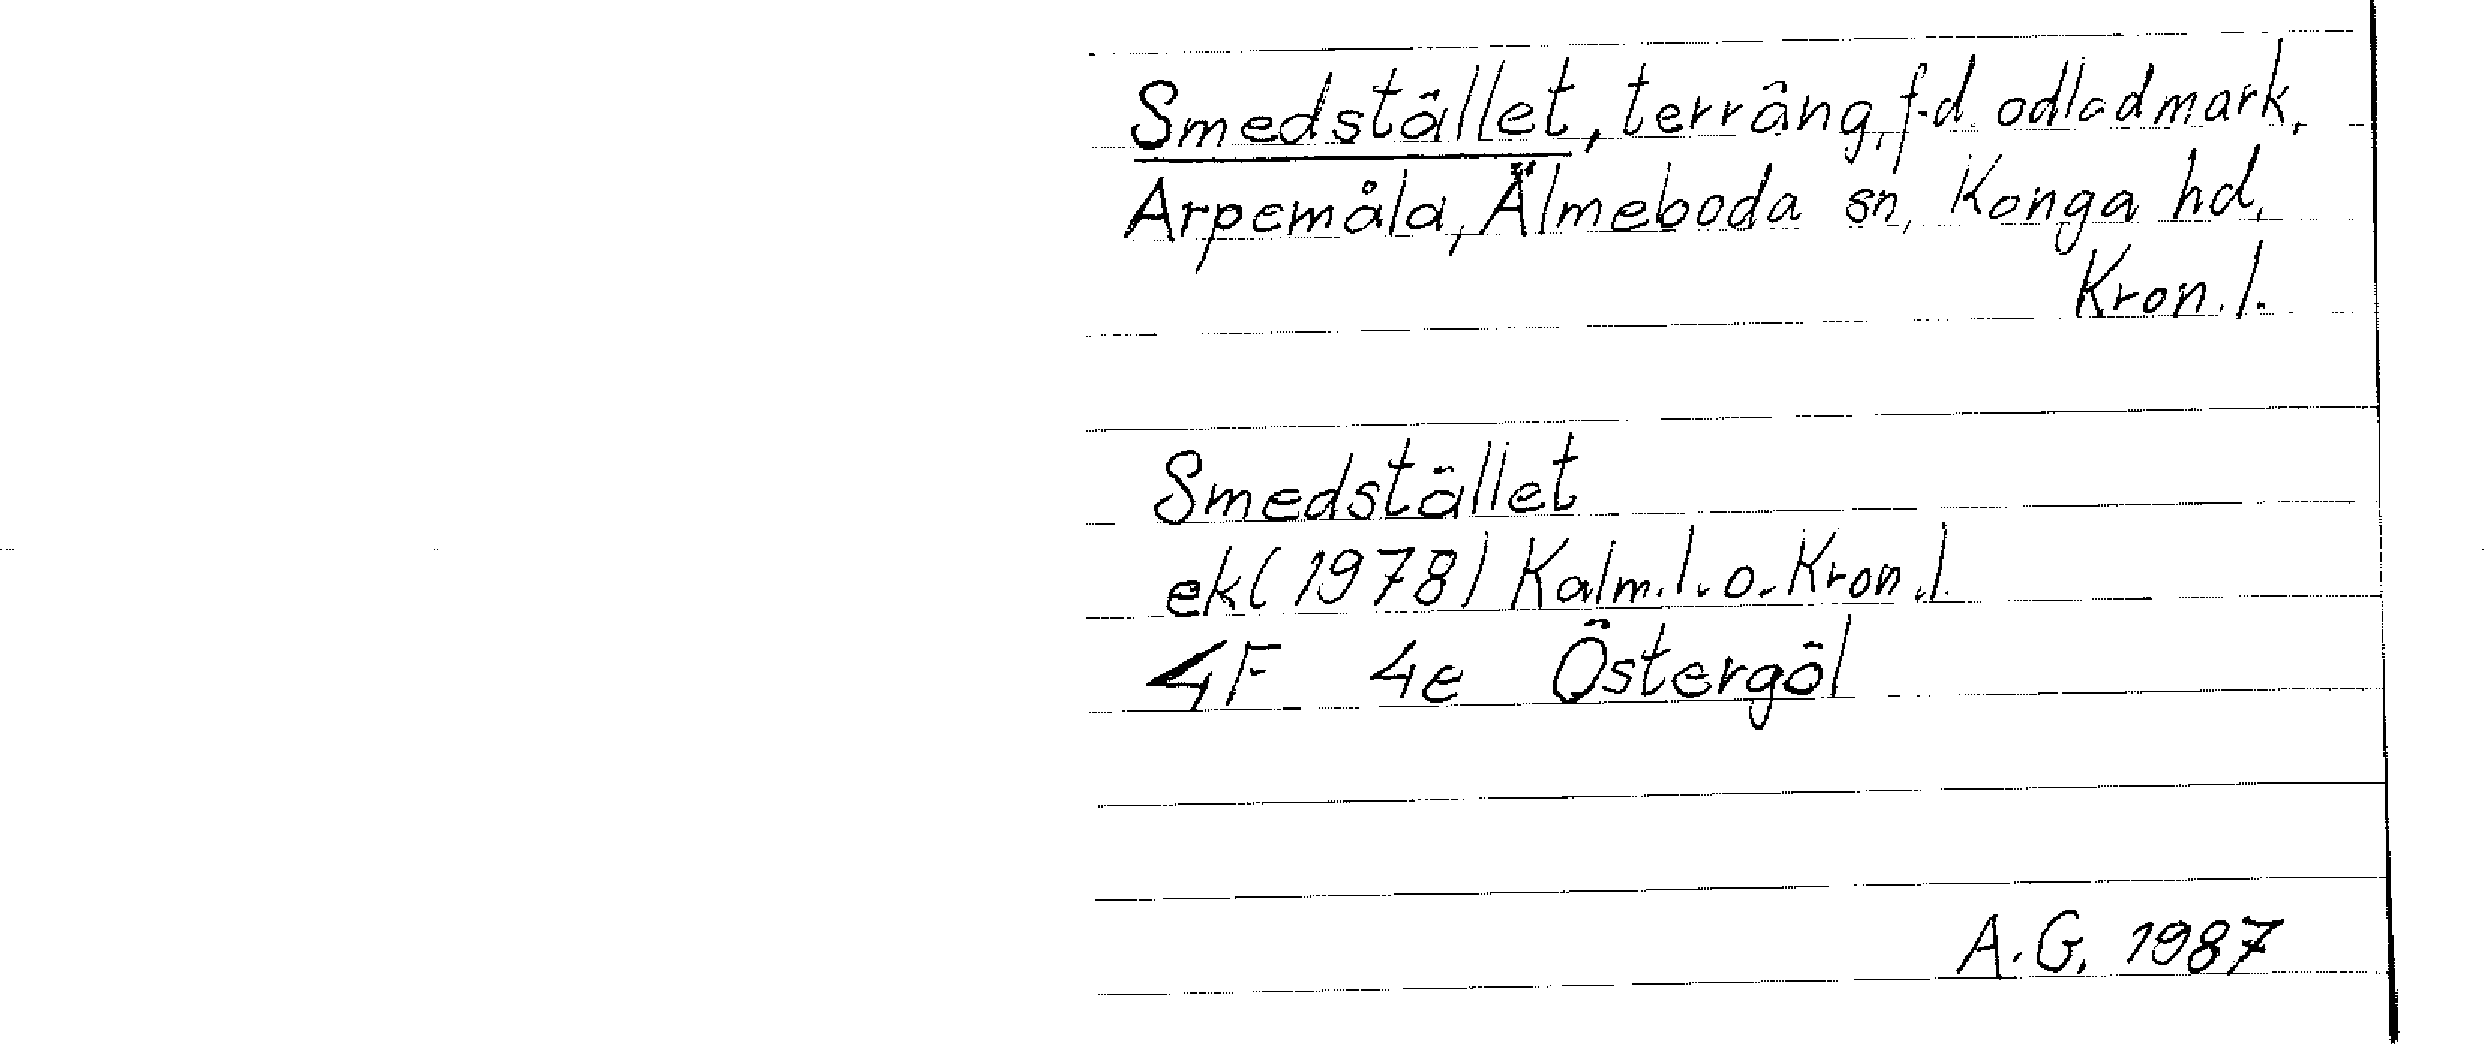 Smedstället, terräng, f.d. odlad mark,
Arpemåla, Älmeboda sn, Konga hd,
Kron. l.
Smedstället
ek (1978) Kalm. l. o. Kron. l.
4F 4e Östergöl
A.G. 1987